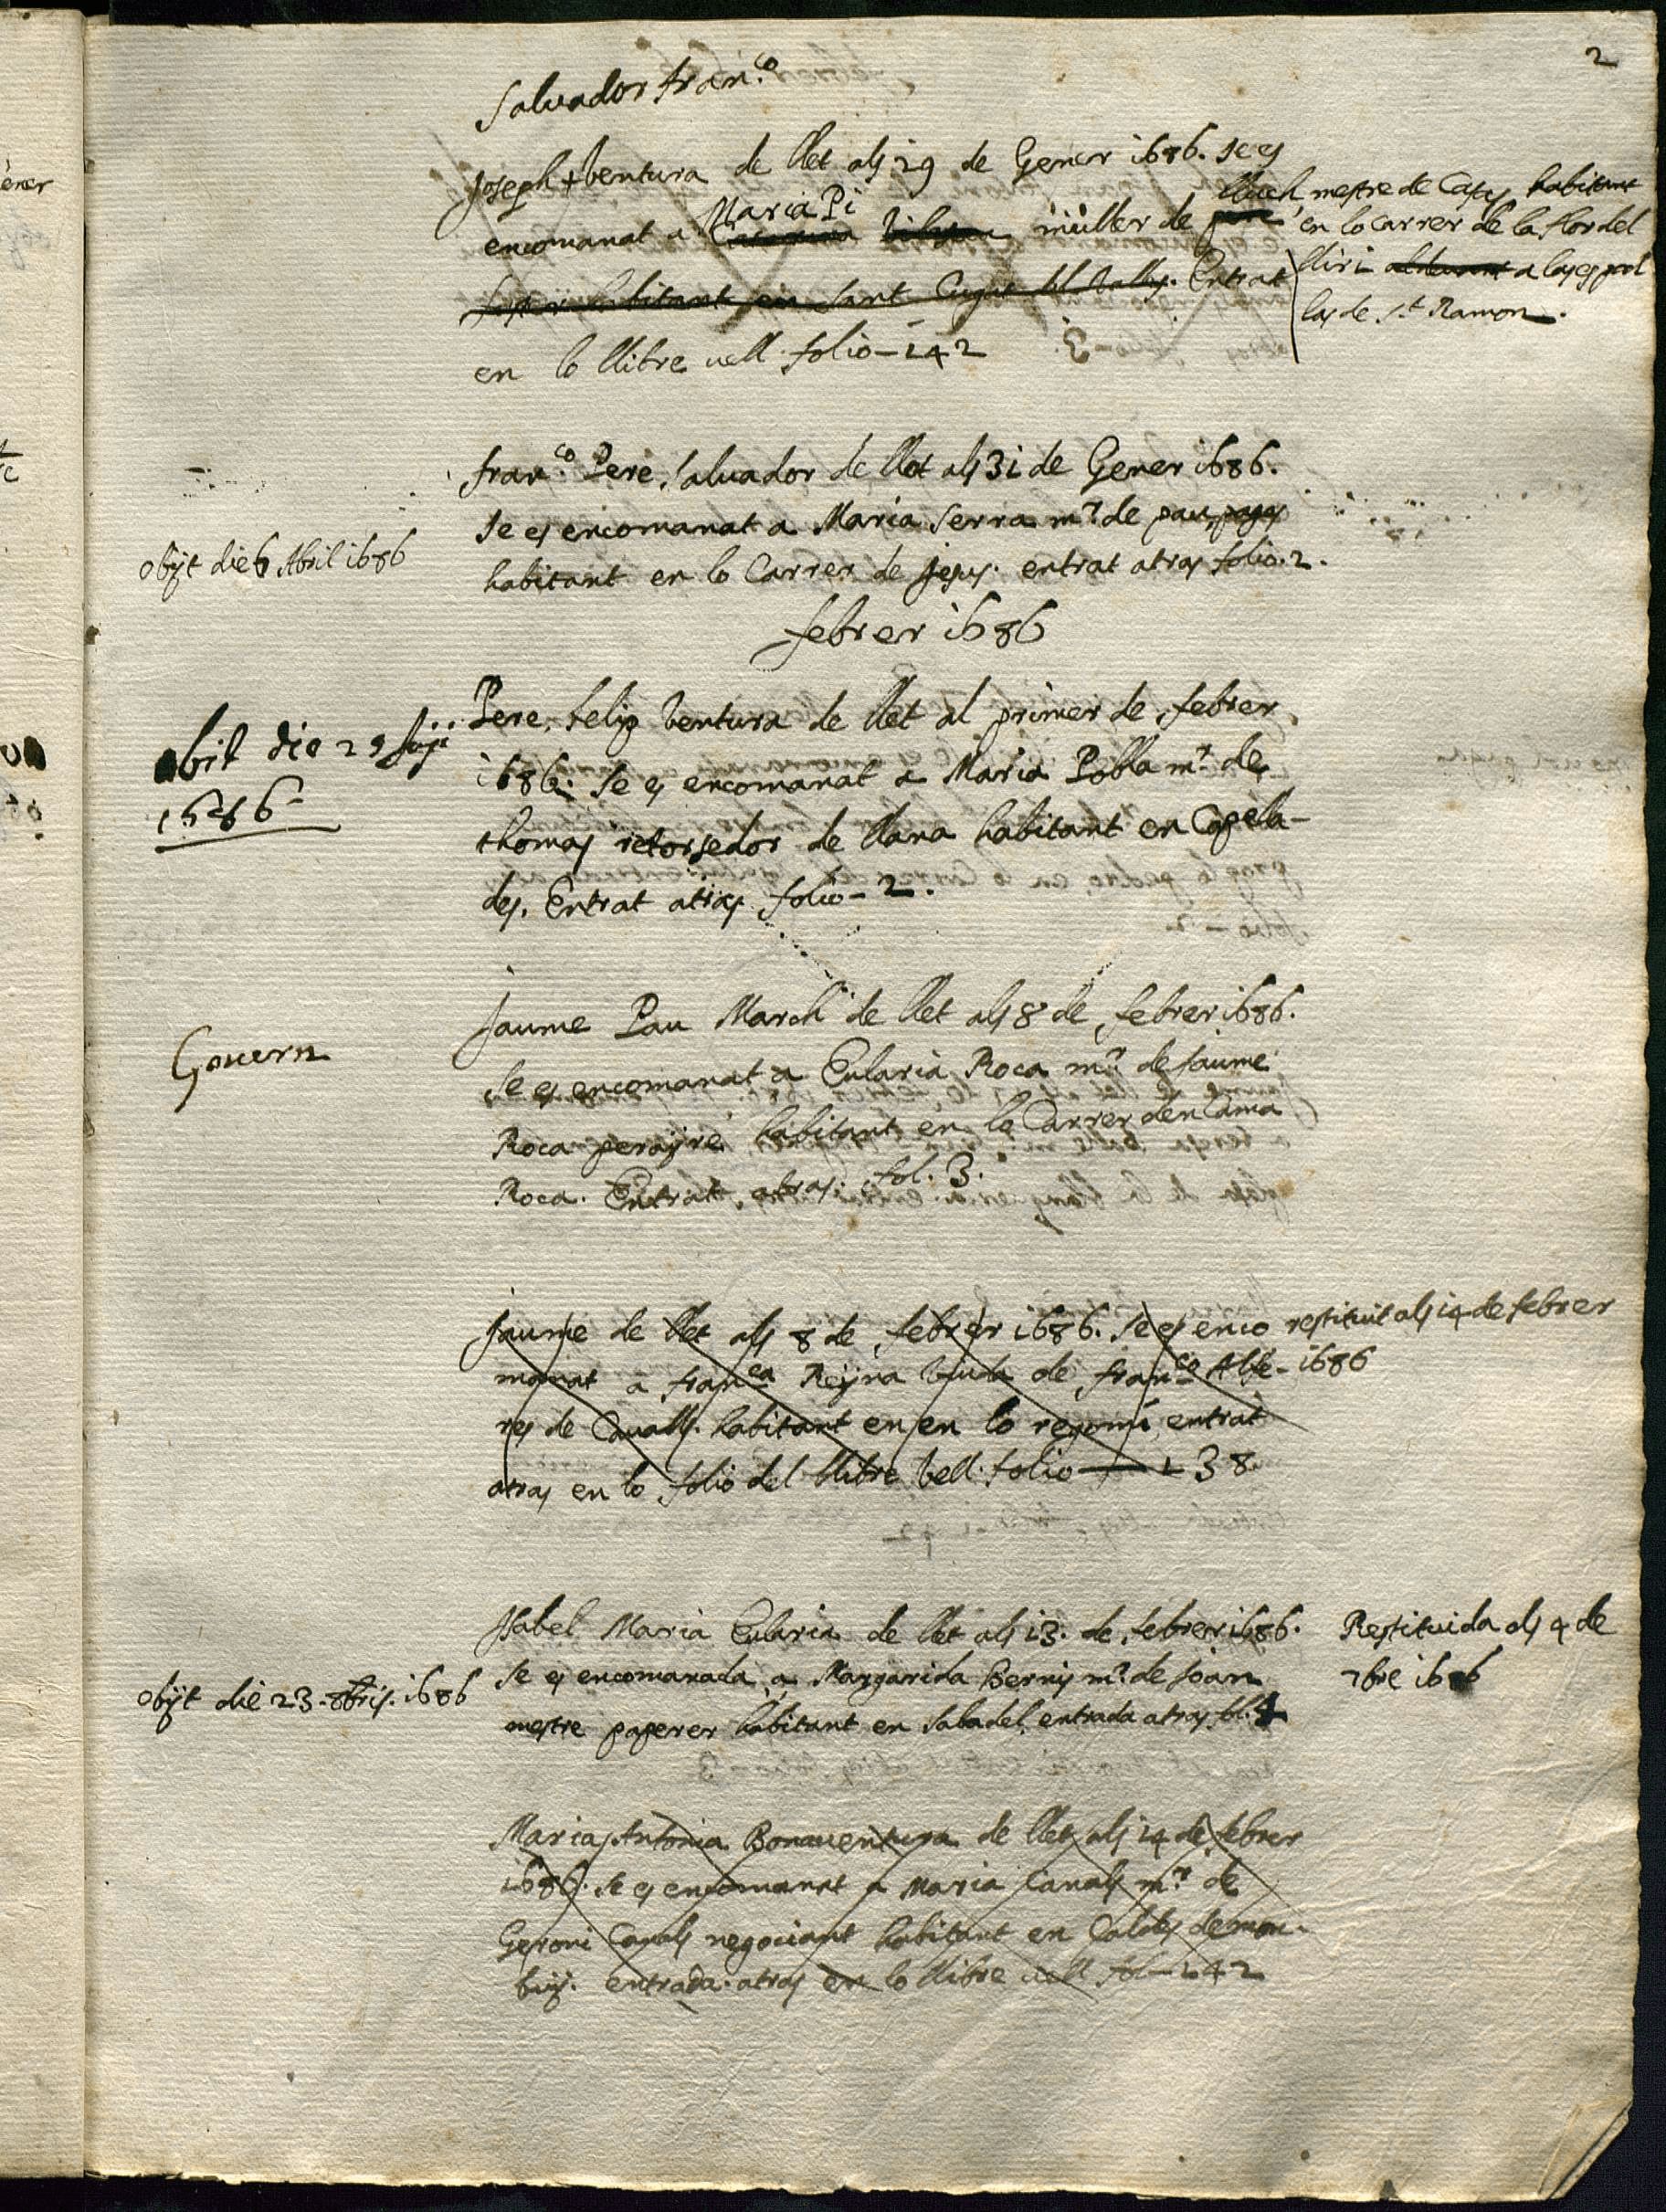 2
Salvador fran.co
Joseph + bentura de llet als 29 de Gener 1686. se es
encomanat a Maria Pi muller de lluch mestre de Cases habitant
en lo carrer de la flor del
lliri a las espal
las de St Ramon.
habitant en Sant Cugat del Valles. Entrat
en lo llibre vell folio - 142
fran.co Pere Salvador de llet als 31 de Gener 1686.
se es encomanat a Maria Serra mr de pau pages
habitant en lo Carrer de Jesus. entrat atras folio. 2.
obijt die 6 Abril 1686
febrer 1686
Pere felip bentura de llet al primer de febrer
1686. se es encomanat a Maria Pobla mr de
thomas retorsedor de llana habitant en Capela-
des. Entrat atras folio - 2.
obit die 29
1686
Jaume Pau March de llet als 8 de febrer 1686.
se es encomanat a Eularia Roca mr de Jaume
Roca perayre habitant en lo Carrer den Cama
Roca. Entrat atras. fol. 3.
Govern
Jaume de llet als 8 de febrer 1686. se es enco
manat a fran.ca Reyna viuda de fran.co Alfe-
res de Cavalls. habitant en en lo regomi entrat
atras en lo folio del llibre vell. folio — 138
restituit als 14 de febrer
1686
Isabel Maria Eularia de llet als 13. de febrer 1686.
se es encomanada a Margarida Bernis mr de Joan
mestre paperer habitant en Sabadel, entrada atras fol. 4
obijt die 23. 8bris. 1686
Restituida als 4 de
7bre 1686
Maria Antonia Bonaventura de llet als 14 de febrer
1686. se es encomanat a Maria Canals mr de
Geroni Canals negociant habitant en Caldes de mon-
buy. entrada atras en lo llibre vell fol - 142